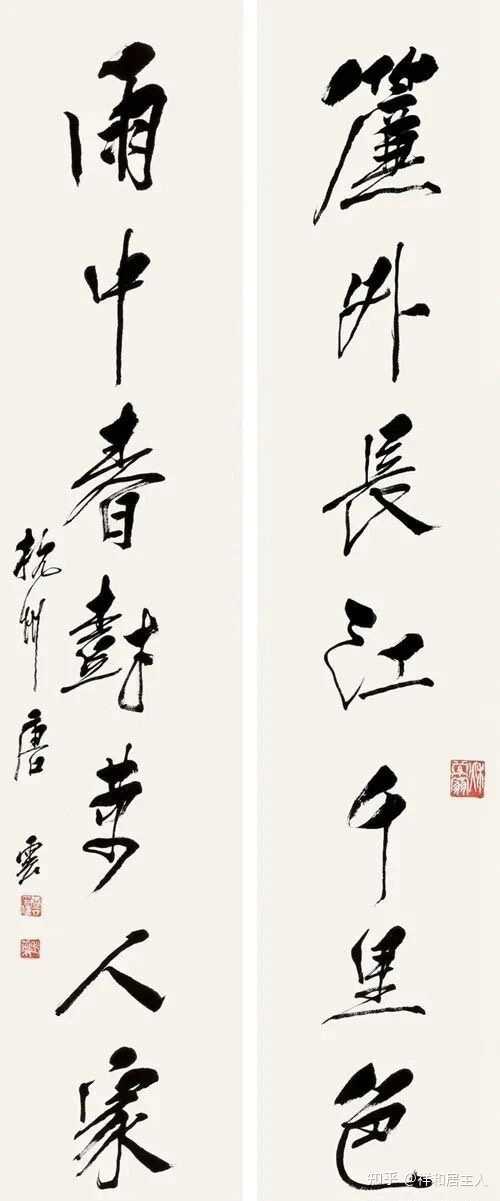 簾外長江千里色
雨中春樹萬人家
杭州唐雲
知乎 @祥和居主人